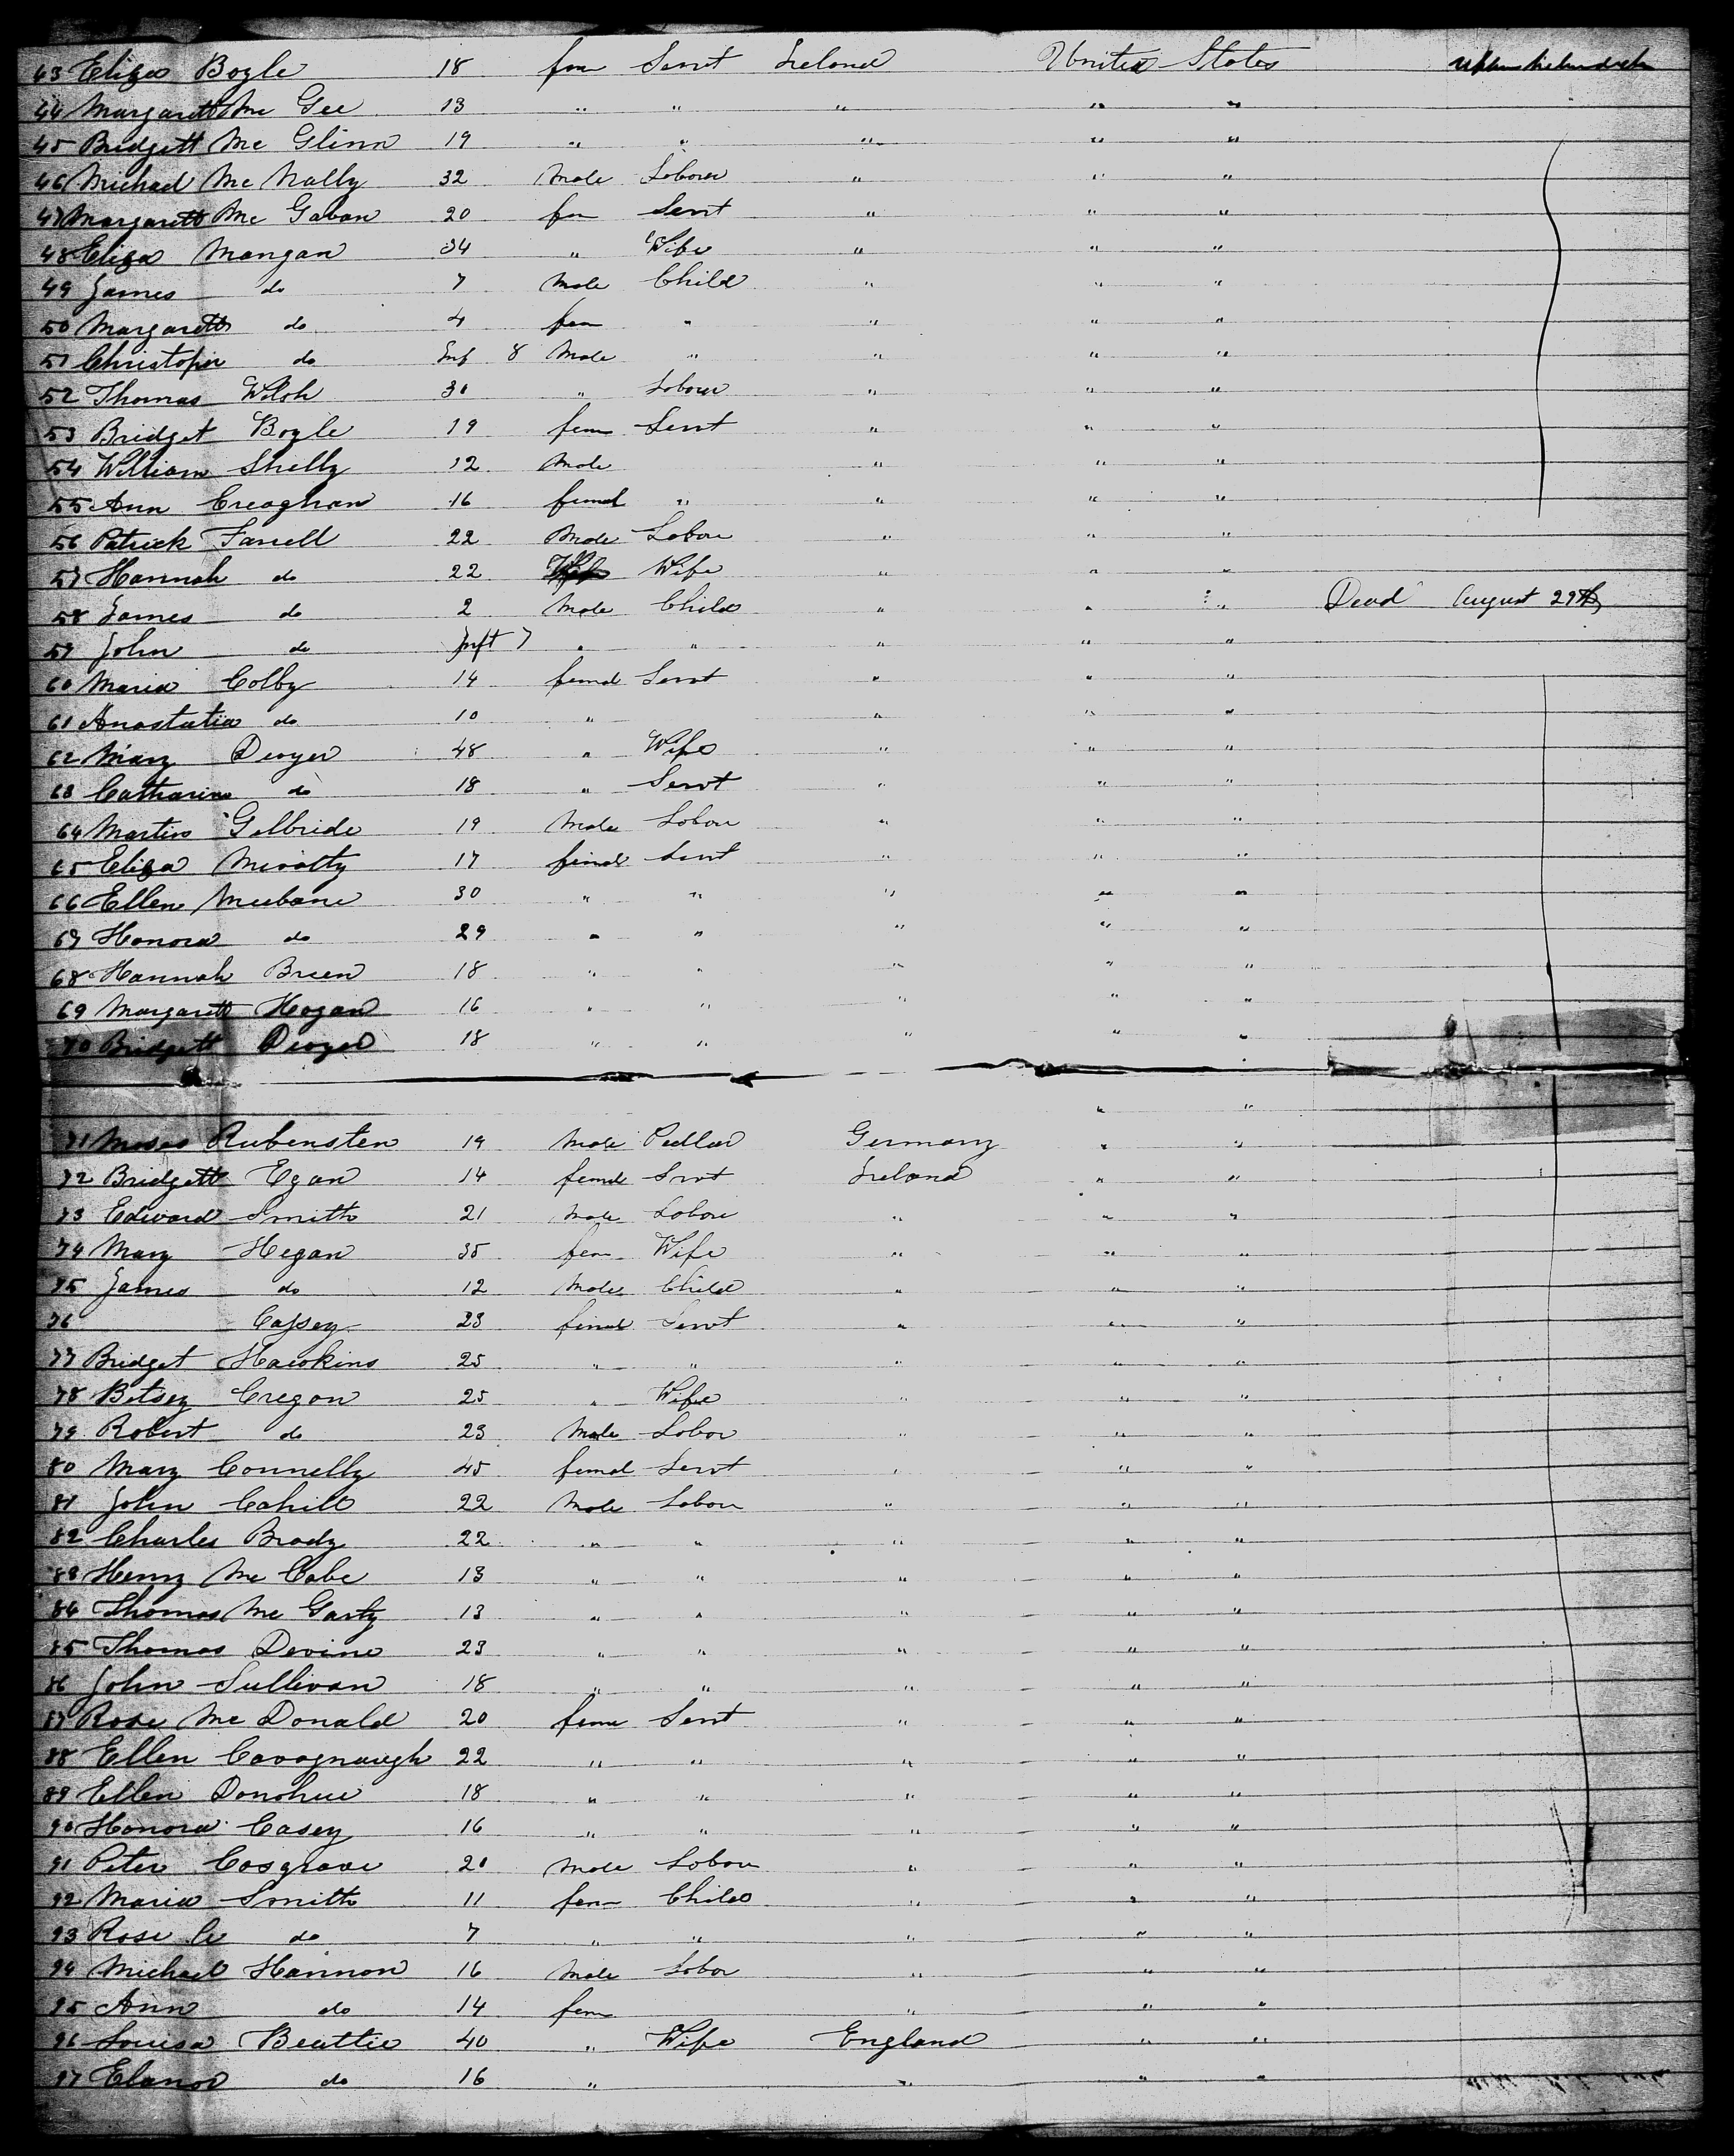 43 Eliza Boyle 18 fem Servt Ireland United States
44 Margarett Mc Gee 13 " " " " "
45 Bridgett Mc Glinn 19 " " " " "
46 Michael Mc Nally 32 Male Laborer " " "
47 Margarett Mc Gavan 20 fem Servt " " "
48 Eliza Mangan 34 " Wife " " "
49 James do 7 Male Child " " "
50 Margarett do 4 fem " " " "
51 Christopher do Inf 8 Male " " " "
52 Thomas Welch 30 " Laborer " " "
53 Bridget Boyle 19 fem Servt " " "
54 William Shelly 12 Male " " "
55 Ann Creaghan 16 femal " " " "
56 Patrick Farrell 22 Male Labour " " "
57 Hannah do 22 Wife " " "
58 James do 2 Male Child " " " Dead August 29th
59 John do Inft 7 " " " " "
60 Maria Colby 14 femal Servt " " "
61 Anastatia do 10 " " " "
62 Mary Dwyer 48 " Wife " " "
63 Catharine do 18 " Servt " " "
64 Martin Gilbride 19 Male Labour " " "
65 Eliza 17 femal Servt " " "
66 Ellen Meebane 30 " " " " "
67 Honora do 29 " " " " "
68 Hannah Breen 18 " " " " "
69 Margarett Hogan 16 " " " " "
70 Bridgett Dwyer 18 " " " " "
" "
71 Moses Rubensten 19 Male Pedlar Germany " "
72 Bridgett Egan 14 femal Srvt Ireland " "
73 Edward Smith 21 Male Labour " " "
74 Mary Hegan 35 fem Wife " " "
75 James do 12 Male Child " " "
76 Cassey 23 femal Servt " " "
77 Bridget Hawkins 25 " " " " "
78 Betsey Cregan 25 " Wife " " "
79 Robert do 23 Male Labor " " "
80 Mary Connelly 45 femal Servt " " "
81 John Cahill 22 Male Labour " " "
82 Charles Brady 22 " " " " "
83 Henry Mc Cabe 13 " " " " "
84 Thomas Mc Garty 13 " " " " "
85 Thomas Devine 23 " " " " "
86 John Sullivan 18 " " " " "
87 Rose Mc Donald 20 fem Servt " " "
88 Ellen Cavagnaugh 22 " " " " "
89 Ellen Donohue 18 " " " " "
90 Honora Casey 16 " " " " "
91 Peter Cosgrove 20 Male Labour " " "
92 Maria Smith 11 fem Child " " "
93 Rose do 7 " " " " "
94 Michael Hannon 16 Male Labor " " "
95 Ann do 14 fem " " "
96 Louisa Beattie 40 " Wife England " "
97 Elanor do 16 " " " "